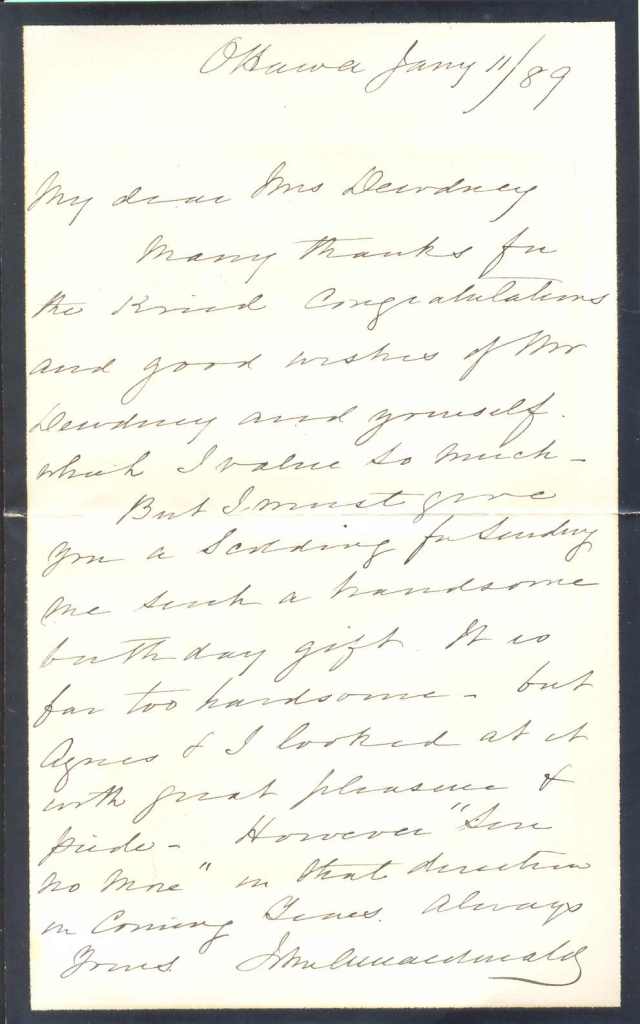 Ottawa Jany 11/89
My dear Mrs Dewdney
Many thanks for
the kind congratulations
and good wishes of Mr
Dewdney and yourself.
which I value so much -
But I must give
you a scolding for sending
me such a handsome
birthday gift. It is
far too handsome - but
Agnes & I looked at it
with great pleasure &
pride - However "Sin
no more" in that direction
in coming years. Always
Yours John A Macdonald